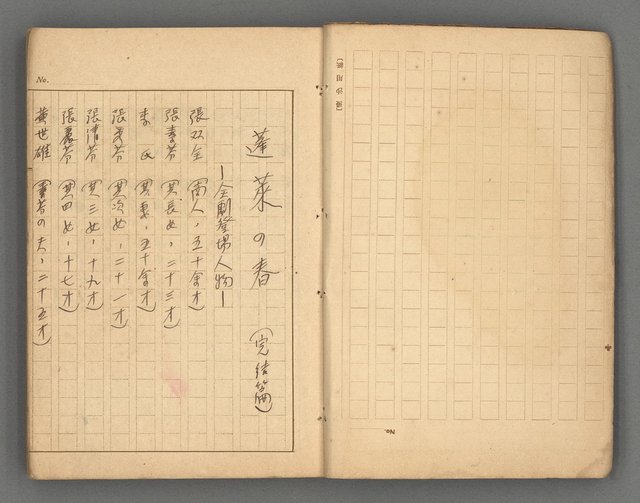 蓬萊の春 (完結篇)
—全劇登場人物—
張双全 (商人，五十余才)
張素芬 (其長女，二十三才)
李氏 (其妻，五十余才)
張芬 (其次女，二十一才)
張清芬 (其三女，十九才)
張麗芬 (其四女，十七才)
黄世雄 (の夫，二十五才)
No.
No.